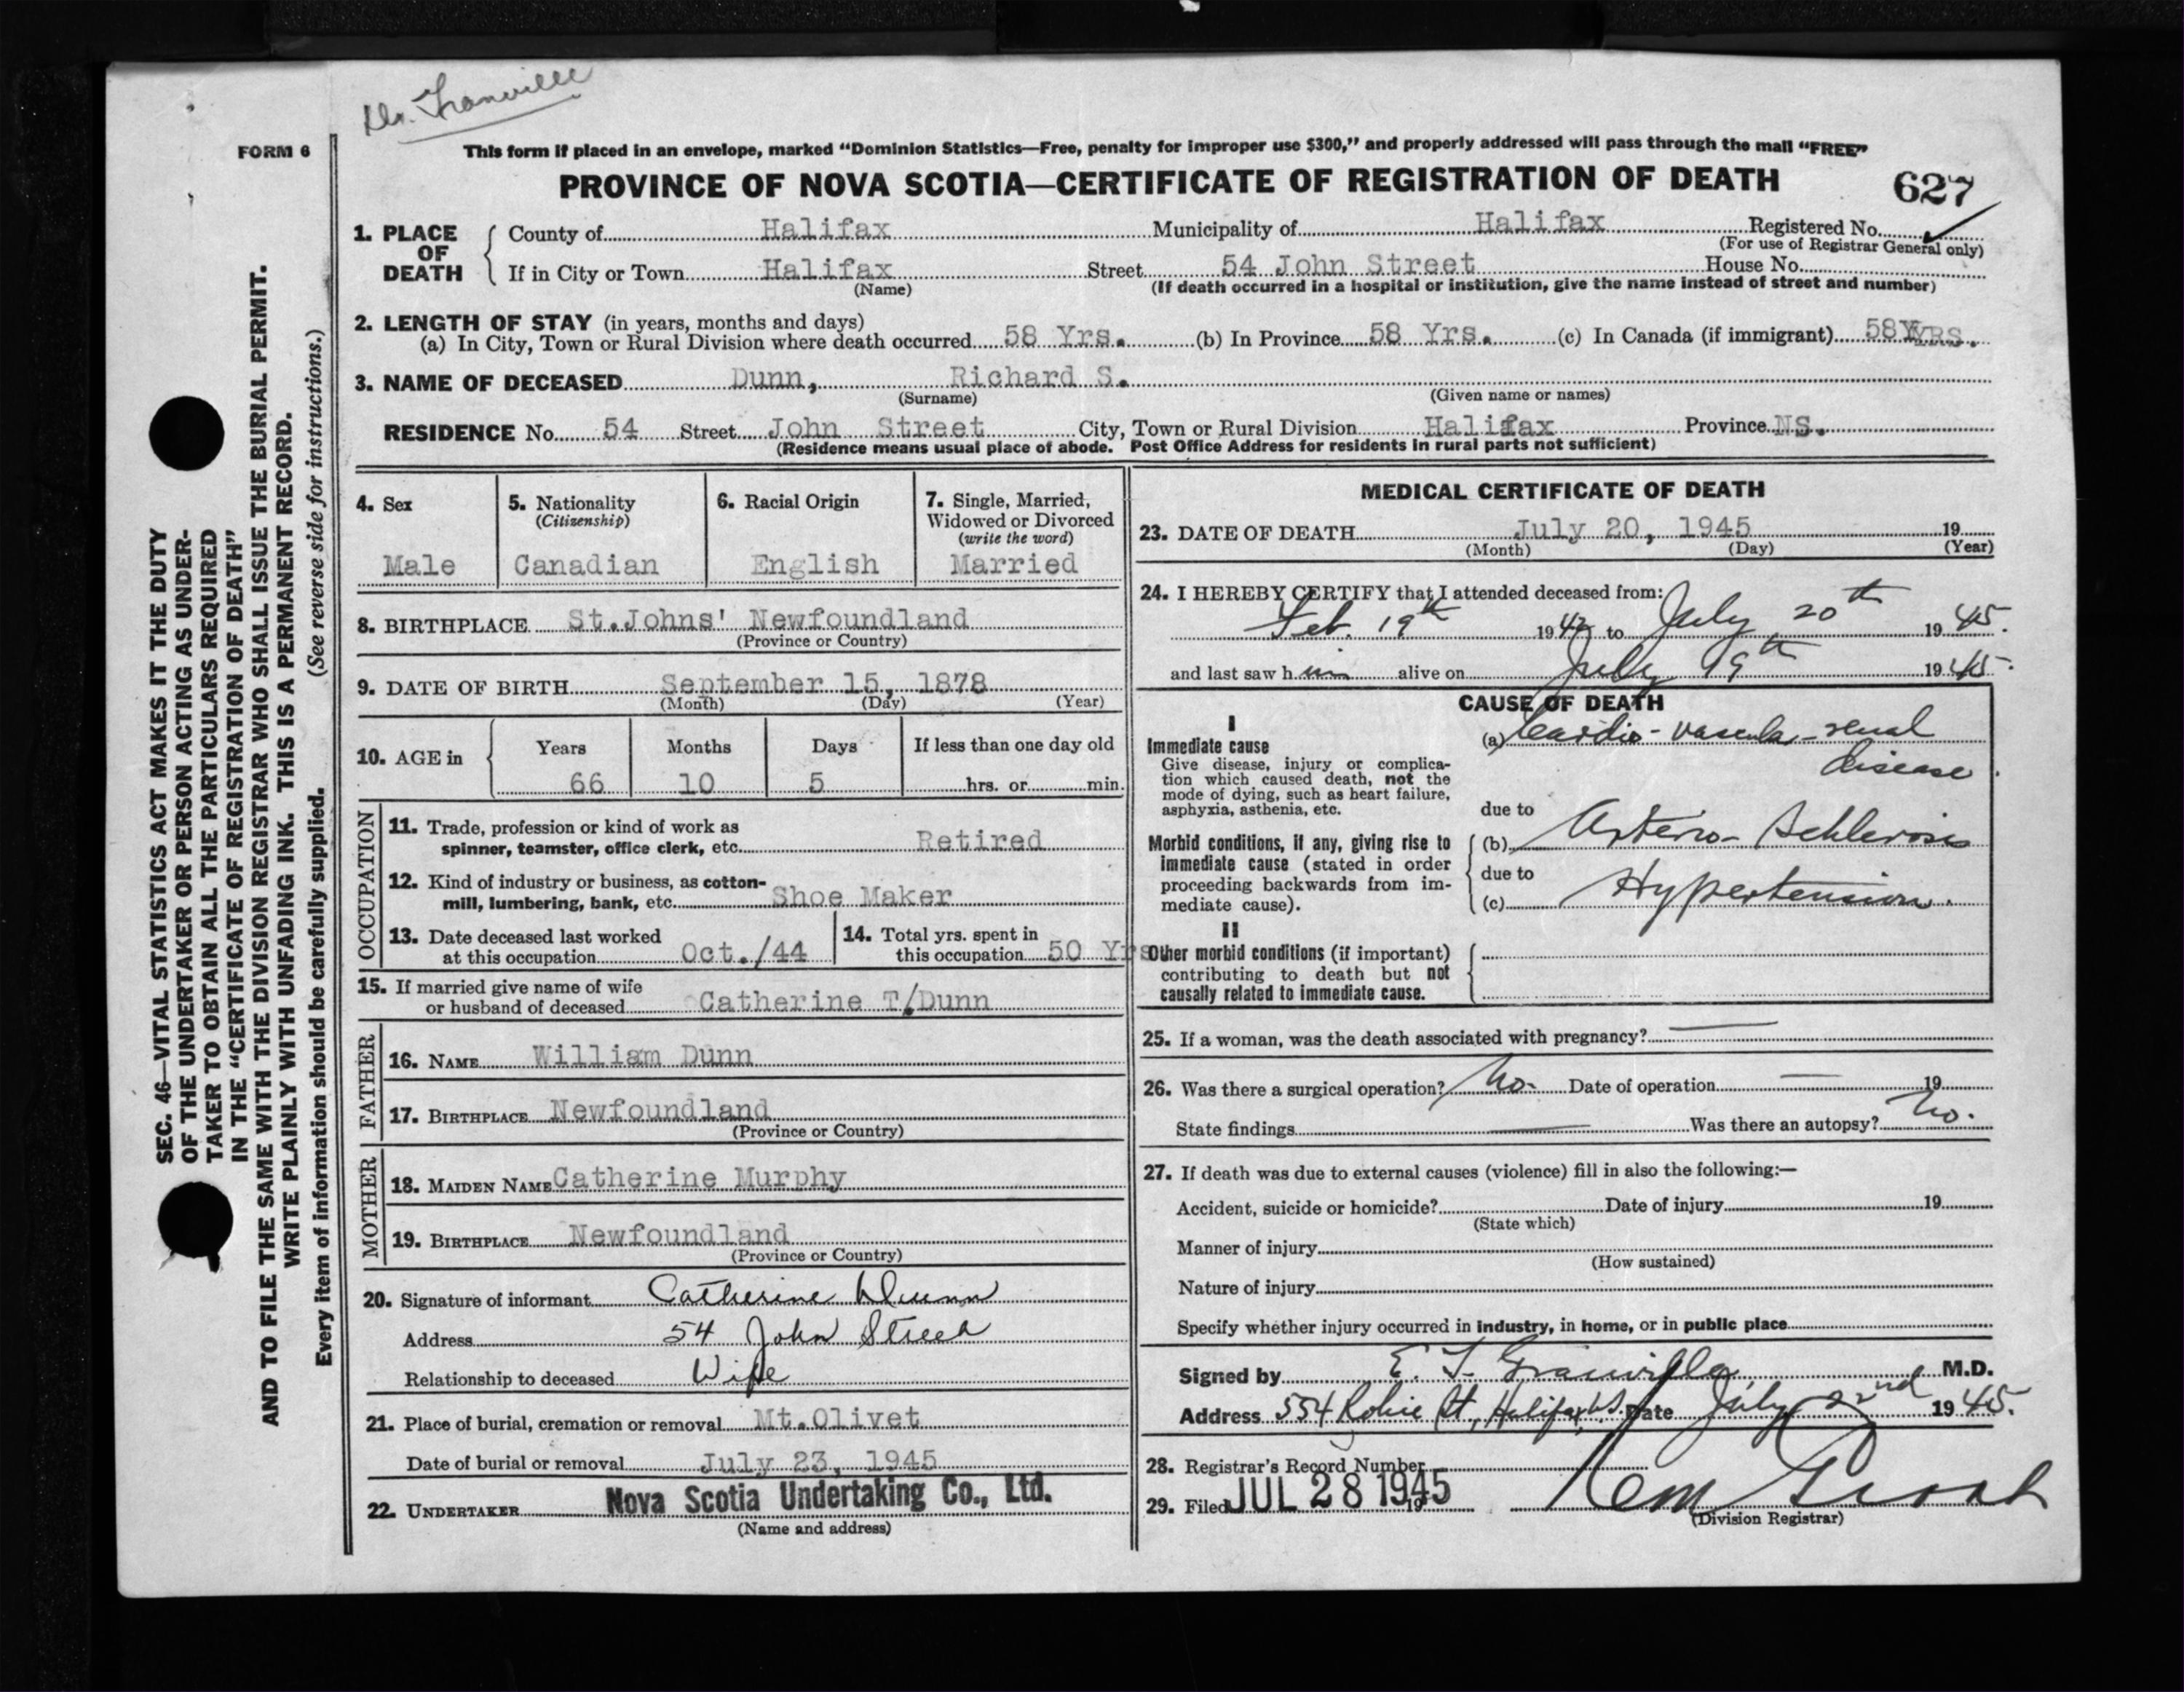 Dr. Granville
FORM 6
This form if placed in an envelope, marked “Dominion Statistics—Free, penalty for improper use $300,” and properly addressed will pass through the mail “FREE”
PROVINCE OF NOVA SCOTIA—CERTIFICATE OF REGISTRATION OF DEATH
627
1. PLACE OF DEATH County of Halifax Municipality of Halifax Registered No.
(For use of Registrar General only)
If in City or Town Halifax Street 54 John Street House No.
(Name) (If death occurred in a hospital or institution, give the name instead of street and number)
2. LENGTH OF STAY (in years, months and days)
(a) In City, Town or Rural Division where death occurred 58 Yrs. (b) In Province 58 Yrs. (c) In Canada (if immigrant) 58 YRS.
3. NAME OF DECEASED Dunn, Richard S.
(Surname) (Given name or names)
RESIDENCE No. 54 Street John Street City, Town or Rural Division Halifax Province NS.
(Residence means usual place of abode. Post Office Address for residents in rural parts not sufficient)
4. Sex
Male
5. Nationality
(Citizenship)
Canadian
6. Racial Origin
English
7. Single, Married,
Widowed or Divorced
(write the word)
Married
8. BIRTHPLACE St.Johns' Newfoundland
(Province or Country)
9. DATE OF BIRTH September 15, 1878
(Month) (Day) (Year)
10. AGE in Years Months Days If less than one day old
66 10 5 hrs. or min.
OCCUPATION
11. Trade, profession or kind of work as
spinner, teamster, office clerk, etc. Retired
12. Kind of industry or business, as cotton-
mill, lumbering, bank, etc. Shoe Maker
13. Date deceased last worked
at this occupation Oct./44
14. Total yrs. spent in
this occupation 50 Yrs
15. If married give name of wife
or husband of deceased Catherine T. Dunn
FATHER
16. NAME William Dunn
17. BIRTHPLACE Newfoundland
(Province or Country)
MOTHER
18. MAIDEN NAME Catherine Murphy
19. BIRTHPLACE Newfoundland
(Province or Country)
20. Signature of informant Catherine Dunn
Address 54 John Street
Relationship to deceased Wife
21. Place of burial, cremation or removal Mt.Olivet
Date of burial or removal July 23, 1945
22. UNDERTAKER Nova Scotia Undertaking Co., Ltd.
(Name and address)
MEDICAL CERTIFICATE OF DEATH
23. DATE OF DEATH July 20, 1945 19
(Month) (Day) (Year)
24. I HEREBY CERTIFY that I attended deceased from:
Feb. 19th 1942 to July 20th 1945.
and last saw him alive on July 19th 1945.
CAUSE OF DEATH
I
Immediate cause
Give disease, injury or complica-
tion which caused death, not the
mode of dying, such as heart failure,
asphyxia, asthenia, etc.
(a) Cardio-vascular-renal
disease.
due to
Morbid conditions, if any, giving rise to
immediate cause (stated in order
proceeding backwards from im-
mediate cause).
(b) Arterio-Schlerosis
due to
(c) Hypertension.
II
Other morbid conditions (if important)
contributing to death but not
causally related to immediate cause.
25. If a woman, was the death associated with pregnancy? —
26. Was there a surgical operation? No. Date of operation — 19
State findings — Was there an autopsy? No.
27. If death was due to external causes (violence) fill in also the following:—
Accident, suicide or homicide? Date of injury 19
(State which)
Manner of injury
(How sustained)
Nature of injury
Specify whether injury occurred in industry, in home, or in public place
Signed by E. F. Granville M.D.
Address 554 Robie St, Halifax, N.S. Date July 22nd 1945.
28. Registrar's Record Number
29. Filed JUL 28 1945 19
(Division Registrar)
SEC. 46—VITAL STATISTICS ACT MAKES IT THE DUTY
OF THE UNDERTAKER OR PERSON ACTING AS UNDER-
TAKER TO OBTAIN ALL THE PARTICULARS REQUIRED
IN THE “CERTIFICATE OF REGISTRATION OF DEATH”
AND TO FILE THE SAME WITH THE DIVISION REGISTRAR WHO SHALL ISSUE THE BURIAL PERMIT.
WRITE PLAINLY WITH UNFADING INK. THIS IS A PERMANENT RECORD.
Every item of information should be carefully supplied. (See reverse side for instructions.)